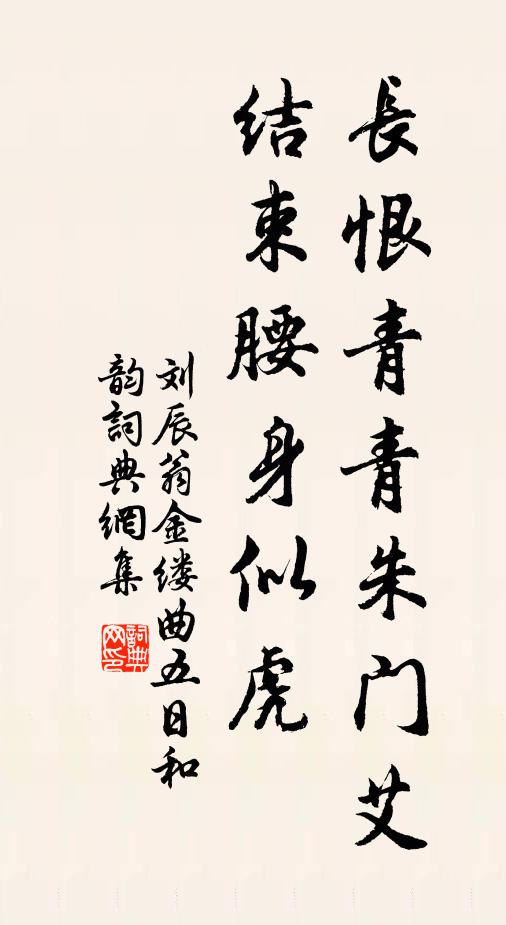 長恨青青朱门艾
结束腰身似虎
刘辰翁金缕曲五日和
韵詞典網集
詞典
网印